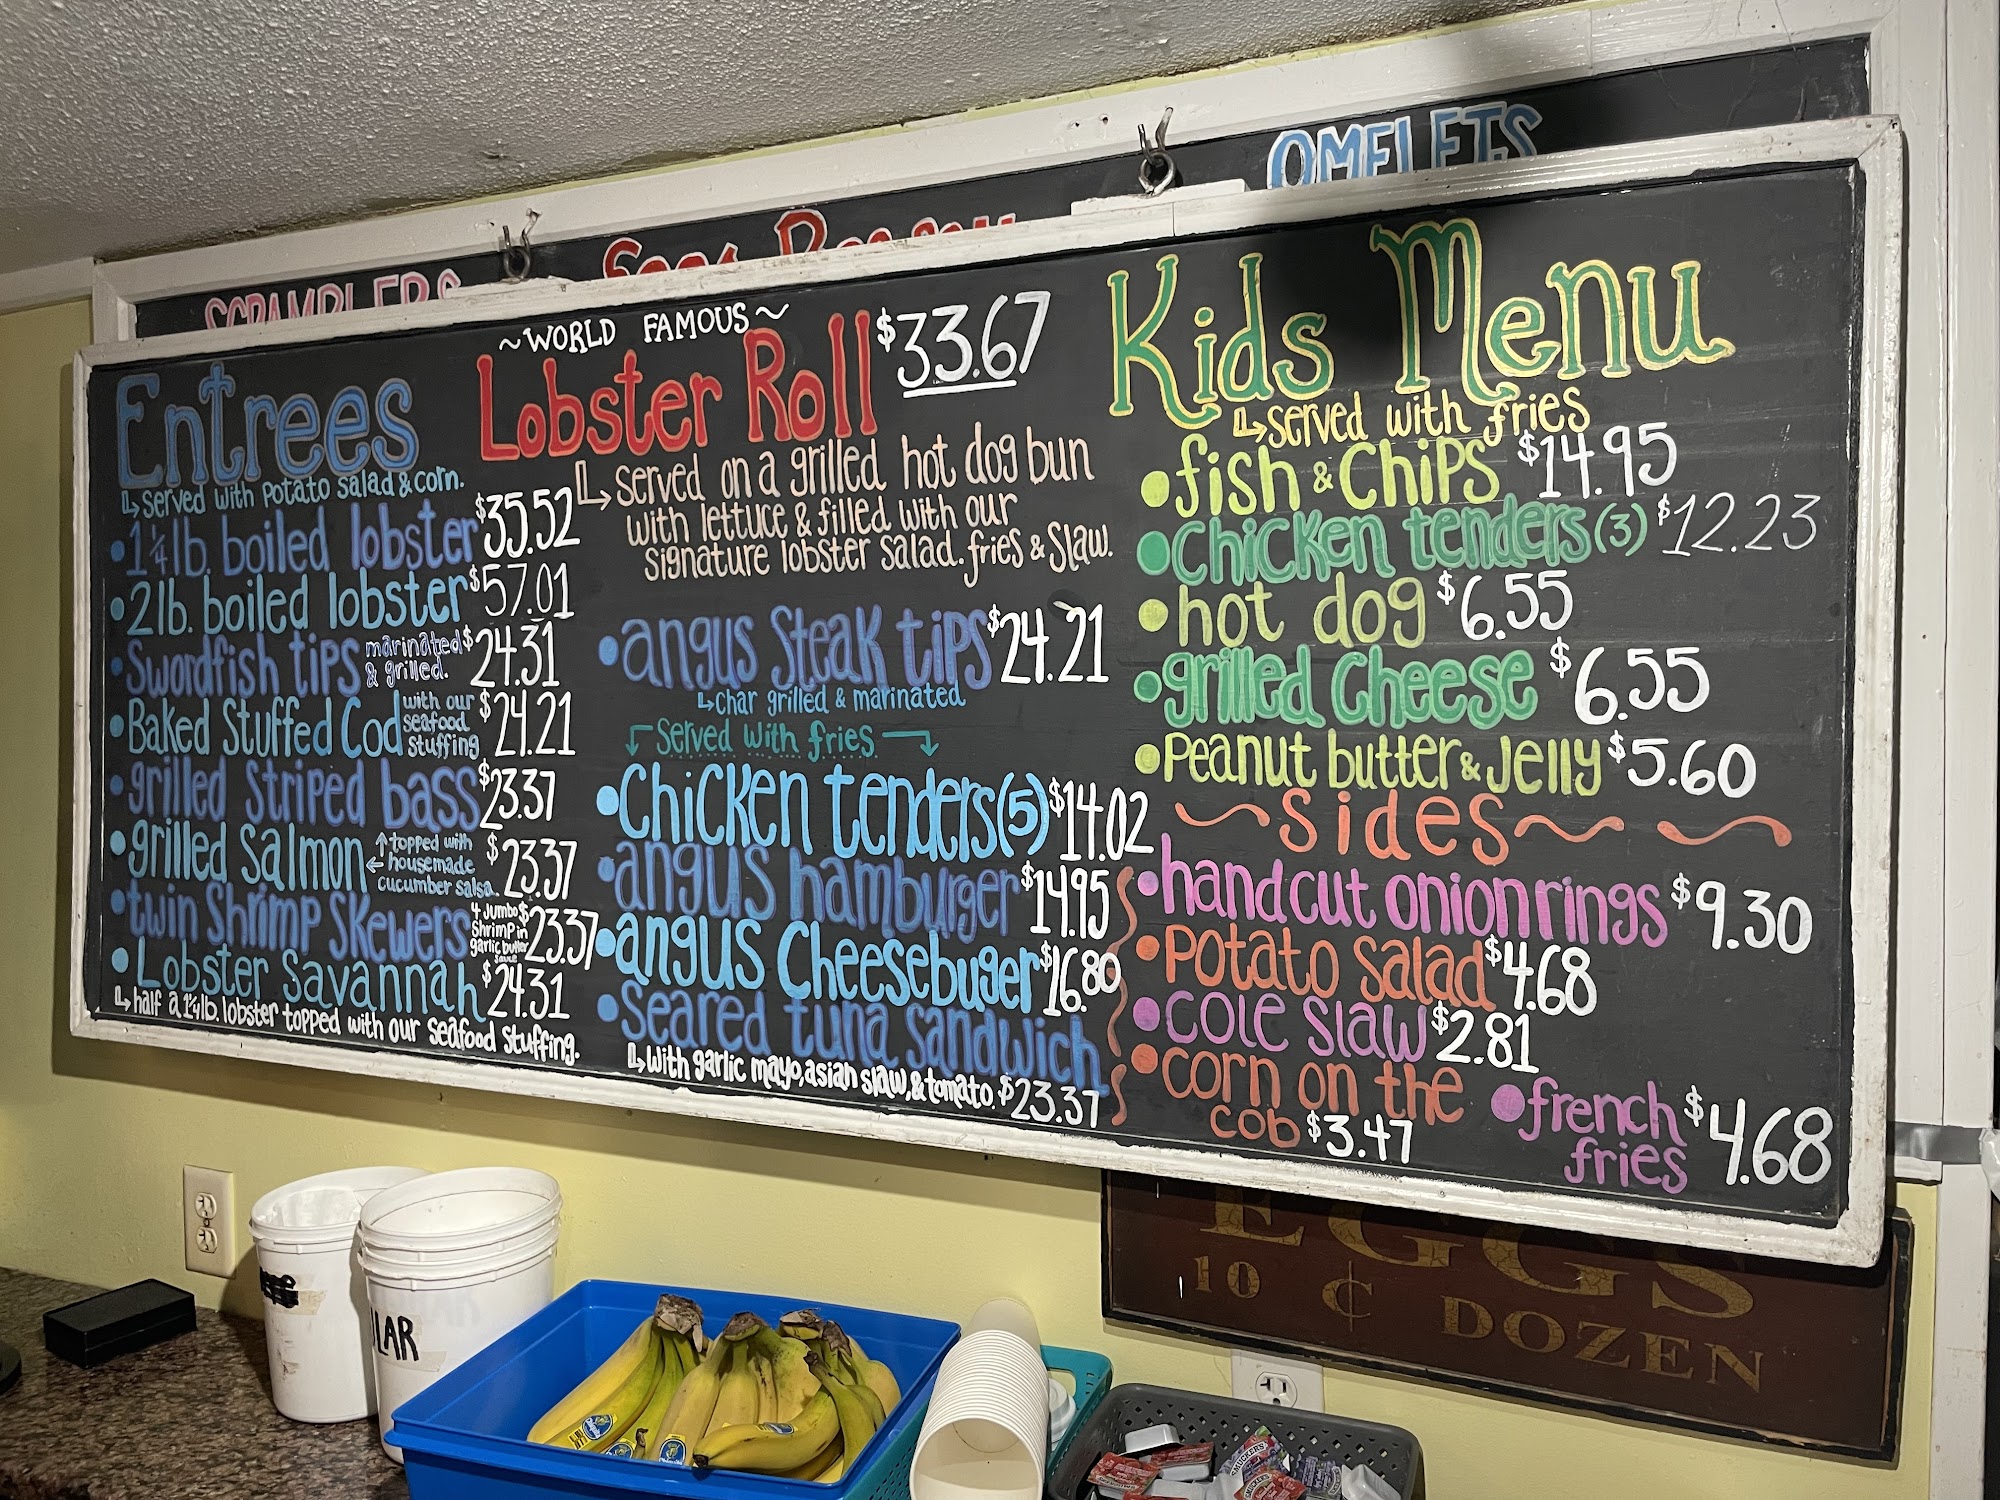 OMELETS
SCRAMBLERS
Entrees
served with potato salad & corn.
• 1 1/4 lb. boiled lobster $35.52
• 2 lb. boiled lobster $57.01
• Swordfish tips marinated & grilled. $24.31
• Baked Stuffed Cod with our seafood stuffing $24.21
• grilled Striped bass $23.37
• grilled Salmon $23.37
↑ topped with
← housemade
cucumber salsa.
• twin Shrimp Skewers $23.37
4 Jumbo
shrimp in
garlic butter
sauce
• Lobster Savannah $24.31
half a 1 1/4 lb. lobster topped with our seafood stuffing.
~WORLD FAMOUS~
Lobster Roll $33.67
served on a grilled hot dog bun
with lettuce & filled with our
signature lobster salad. fries & slaw.
• angus Steak tips $24.21
char grilled & marinated
Served with fries
• Chicken tenders (5) $14.02
• angus hamburger $14.95
• angus Cheesebuger $16.80
• Seared tuna sandwich
with garlic mayo, asian slaw, & tomato. $23.37
Kids Menu
served with fries
• fish & Chips $14.95
• Chicken tenders (3) $12.23
• hot dog $6.55
• grilled Cheese $6.55
• Peanut butter & Jelly $5.60
~ Sides ~ ~
• handcut onion rings $9.30
• Potato Salad $4.68
• Cole Slaw $2.81
• Corn on the
cob $3.47
• french
fries $4.68
EGGS
10 ¢ DOZEN
LAR
Chiquita
SMUCKER'S